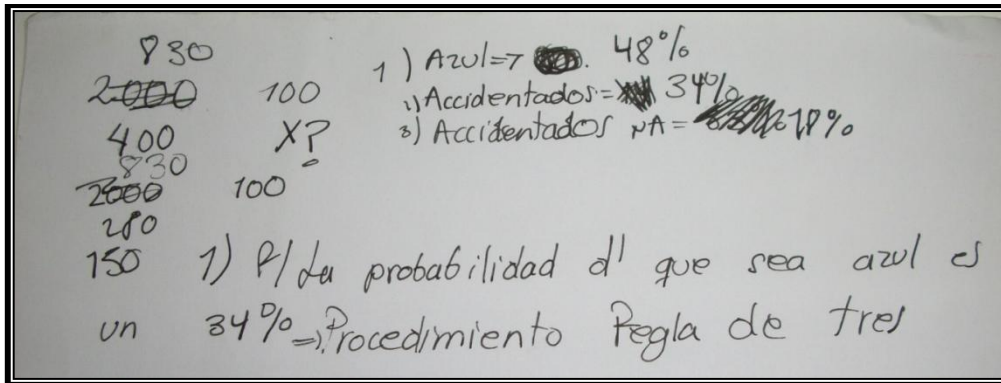 830
2000 100
400 X?
830
2000 100
280
150
1) Azul=> 48%
2) Accidentados= 34%
3) Accidentados NA= 18%
1) R/ La probabilidad d' que sea azul es
un 34% => Procedimiento Regla de tres